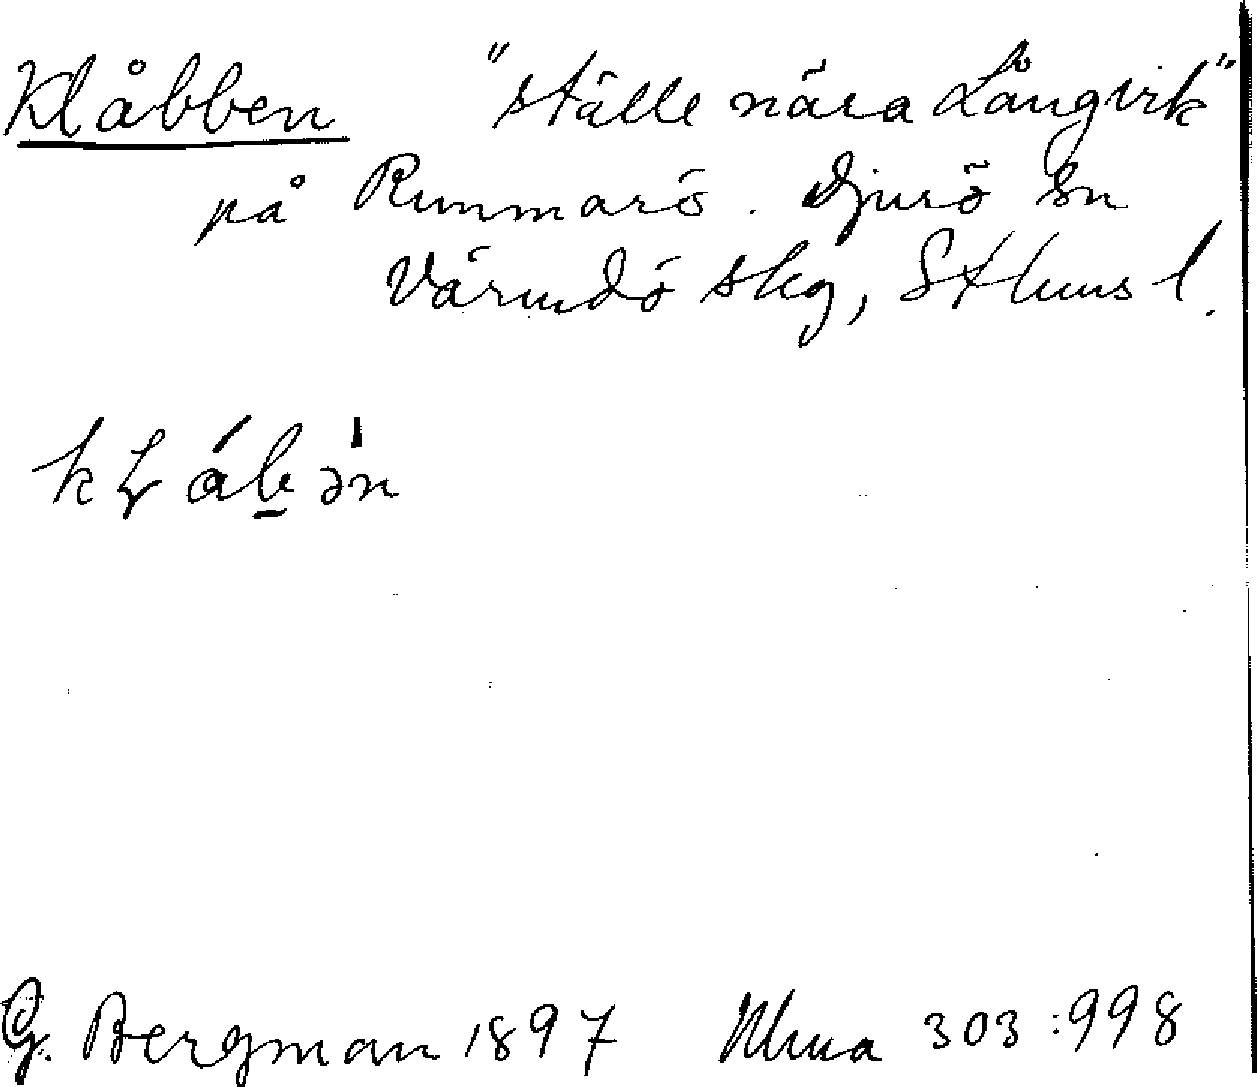 Klåbben "ställe nära Långvik"
på Runmarö. Djurö sn
Värmdö skg, Sthms l.
G. Bergman 1897 303:998